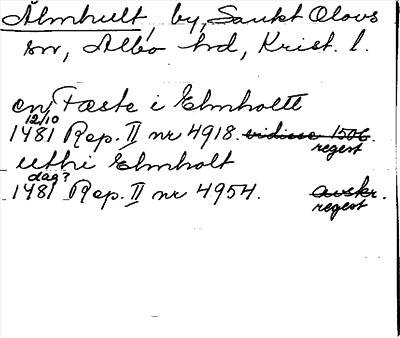 Älmhult, by, Sankt Olovs
sn, Albo hd, Krist. l.
en Fæste i Elmholtt
12/10
1481 Rep. II nr 4918. vidisse 1506.
regest
uthi Elmholt
dag?
1481 Rep. II nr 4954. avskr.
regest